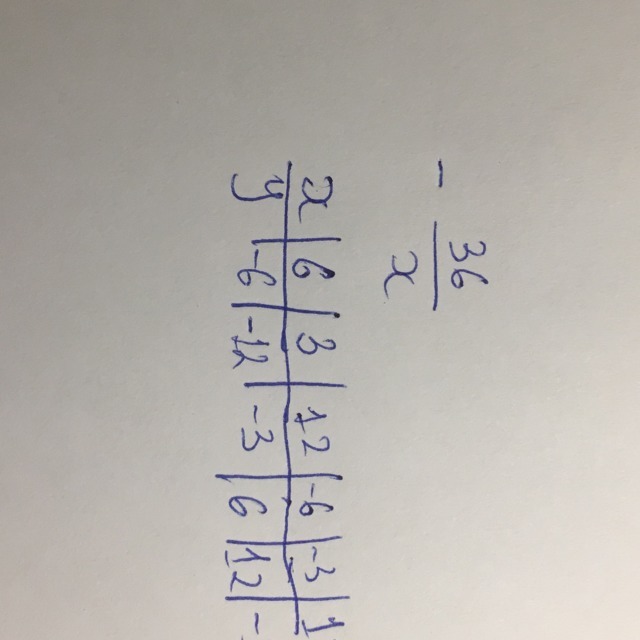 - 36
x
x 6 3 12 -6 -3 1
y -6 -12 -3 6 12 -